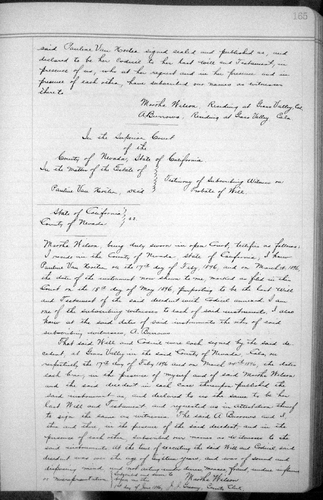 165
said Pauline Van Hoeter signed sealed and published as, and
declared to be her Codicil to her last Will and Testament, in
presence of us, who at her request and in her presence and in
presence of each other, have subscribed our names as witnesses
thereto
Moorhs Wilson, Residing at Grass Valley, Cal.
A Burrows, Residing at Grass Valley Cala
In the Superior Court
of the
County of Nevada, State of California
In the Matter of the Estate of
Pauline Van Hoeter, decd
Testimony of Subscribing Witness on
Probate of Will.
State of California
County of Nevada } ss
Wilson, being duly sworn in open Court, testifies as follows:
I reside in the County of Nevada State of California, I knew
Pauline Van Hoeter on the 19th day of Feby 1896, and on March
the date of the instrument now shown to me, marked as filed in this
Court on the 18th day of May 1896, purporting to be the last Will
and Testament of the said decedent and Codicil annexed. I am
one of the subscribing witnesses to each of said instruments. I also
knew at the said dates of said instruments the other of said
subscribing witnesses, A. Burrows
That said Will and Codicil were each signed by the said de-
cedent, at Grass Valley in the said County of Nevada, Cala, on
respectively the 19th day of Feby 1896 and on March 1896, the date
each bear, in the presence of myself and of said
and the said decedent in each case thereupon published the
said instrument as, and declared to us the same to be her
last Will and Testament and requested us in attestation thereof
to sign the same as witnesses. The said A Burrows and I
then and there, in the presence of the said decedent, and in the
presence of each other, subscribed our names as witnesses to the
said instruments. At the time of executing the said Will and Codicil said
decedent was over the age of eighteen years, and was of sound and
disposing mind and not acting under duress, menace, fraud, undue influence
or misrepresentation
Wilson